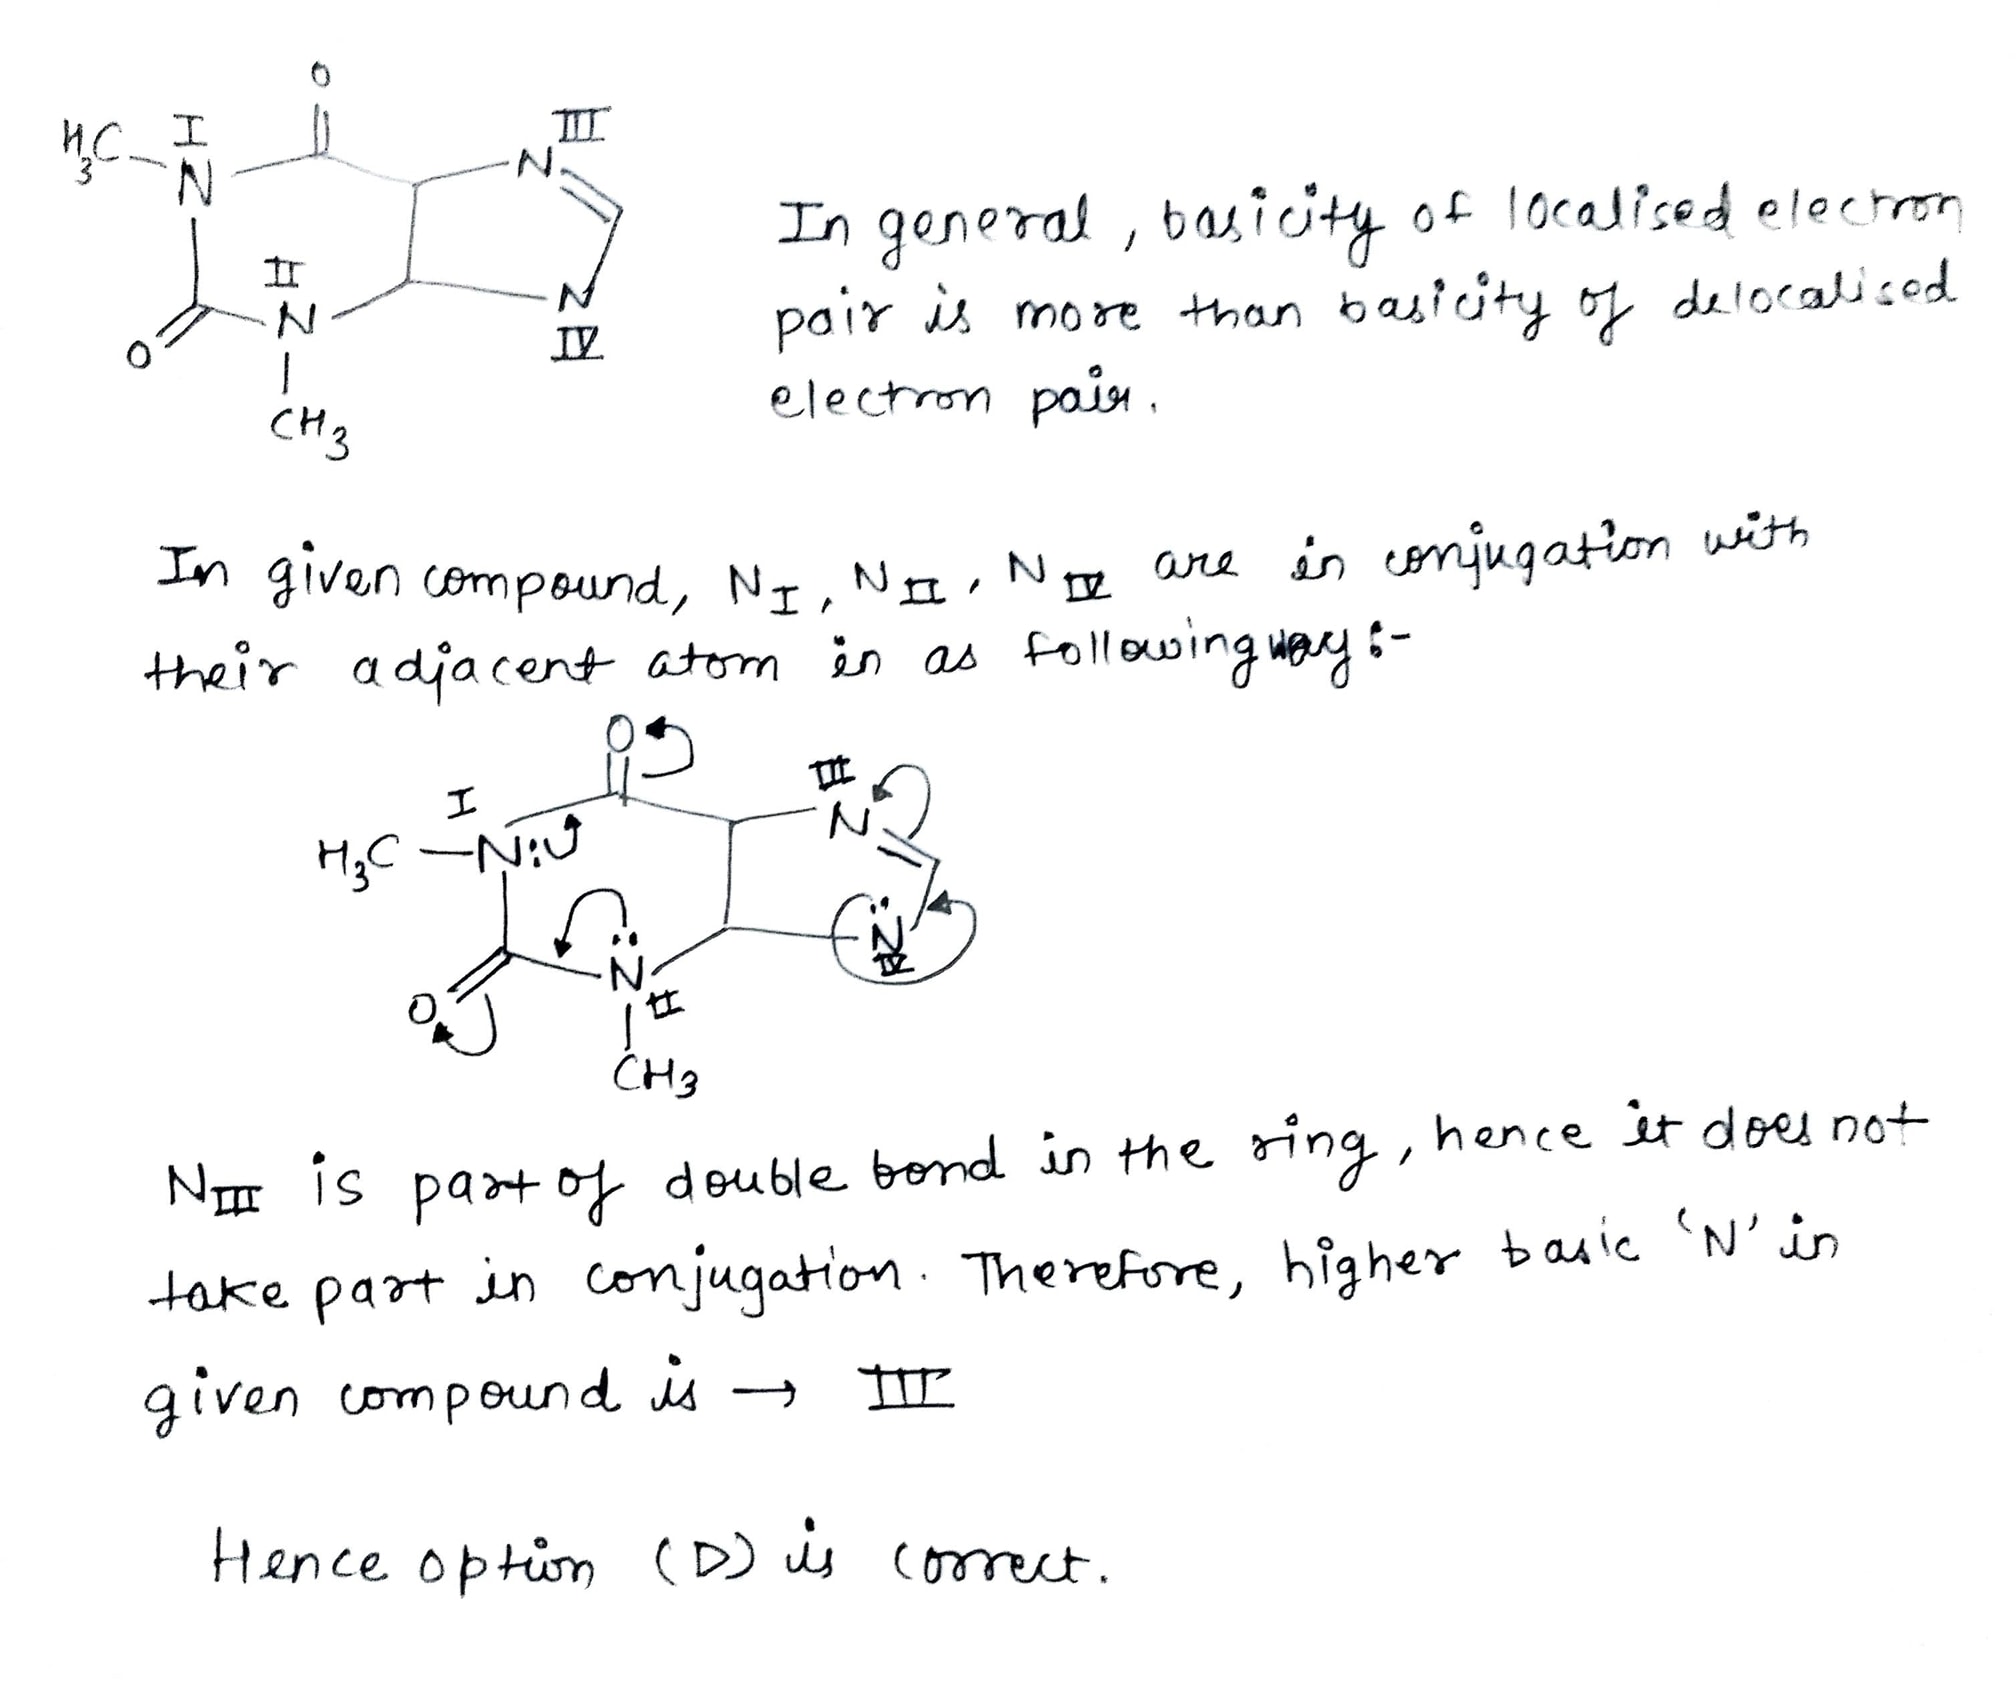 O
H₃C I III
N N
In general, basicity of localised electron
II
N N
pair is more than basicity of delocalised
O IV
electron pair.
CH₃
In given compound, N_I, N_II, N_IV are in conjugation with
their adjacent atom in as following way :-
O
III
I
N
H₃C N:
N
IV
O N
II
CH₃
N_III is part of double bond in the ring, hence it does not
take part in conjugation. Therefore, higher basic 'N' in
given compound is → III
Hence option (D) is correct.